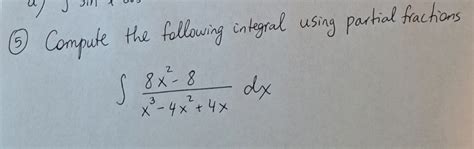 a) ∫ sin x cos
⑤ Compute the following integral using partial fractions
∫ (8x² - 8)/(x³ - 4x² + 4x) dx